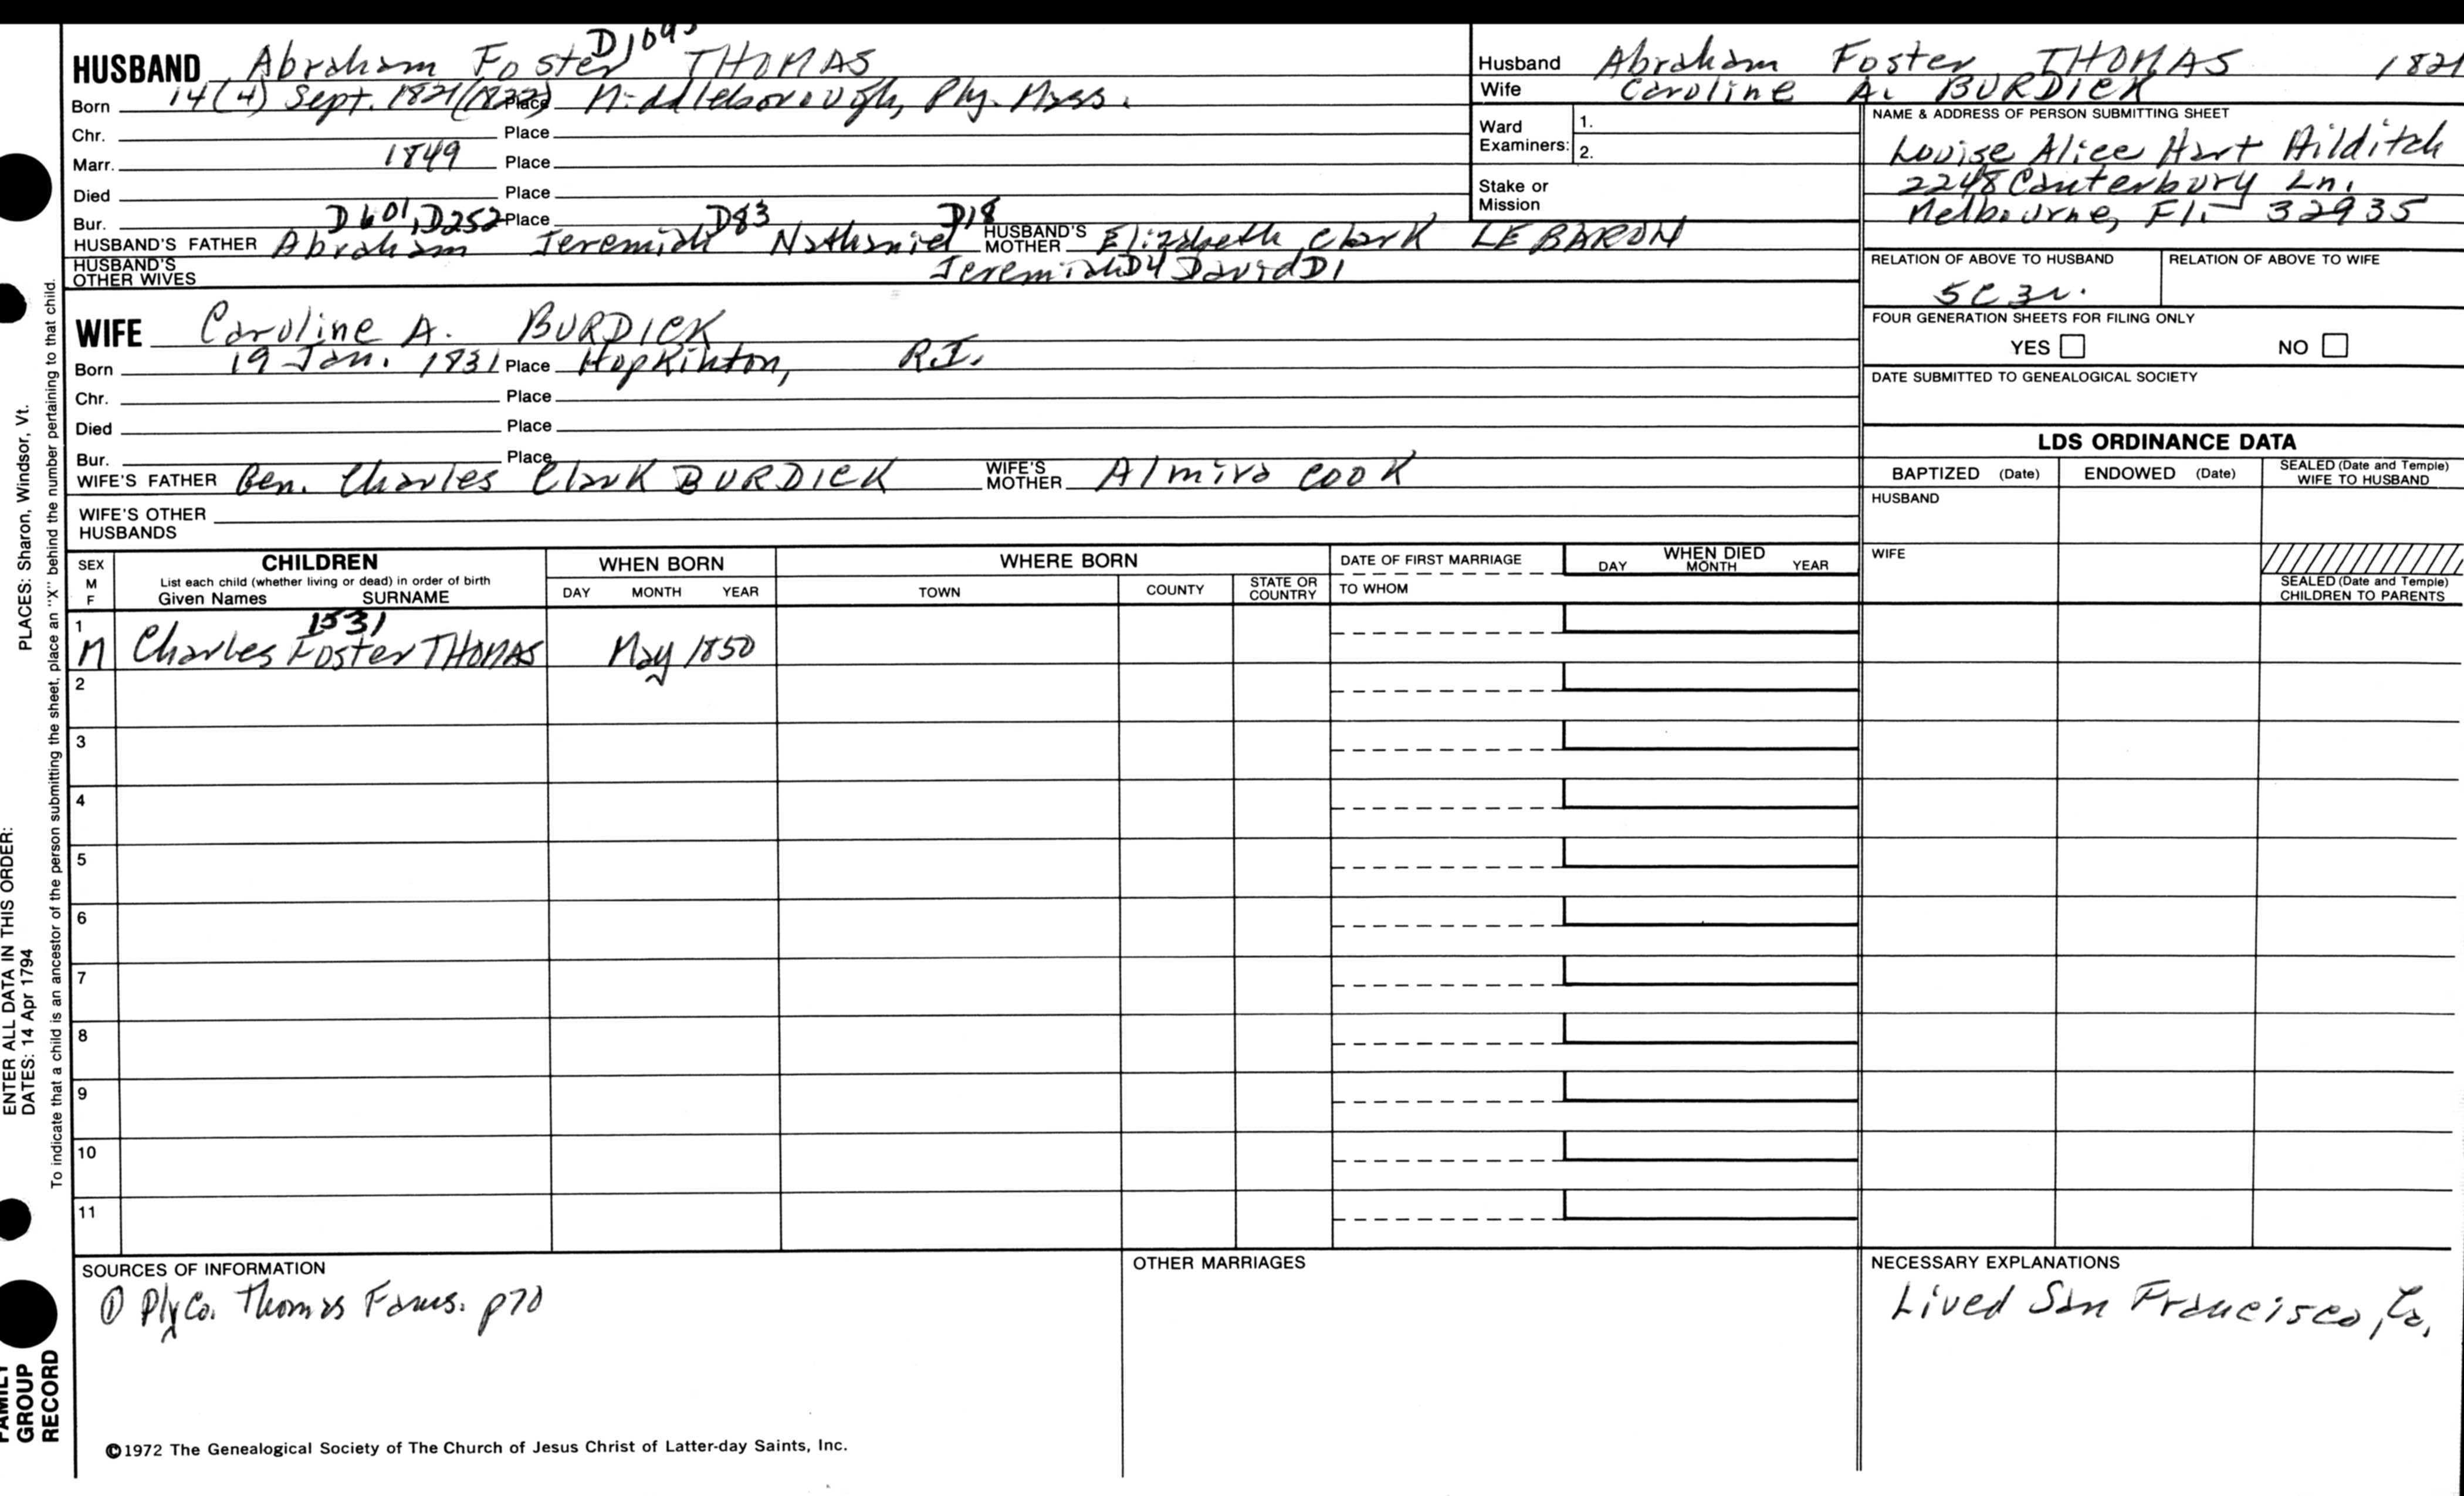 HUSBAND Abraham Foster THOMAS
Born 14(4) Sept. 1821(1822) Place Middleborough, Ply. Mass.
Chr. Place
Marr. 1849 Place
Died Place
Bur. Place
D601, D252 D83 D18
HUSBAND'S FATHER Abraham Jeremiah Nathaniel HUSBAND'S MOTHER Elizabeth Clark LE BARON
HUSBAND'S OTHER WIVES Jeremiah D4 David D1
WIFE Caroline A. BURDICK
Born 19 Jan. 1831 Place Hopkinton, R.I.
Chr. Place
Died Place
Bur. Place
WIFE'S FATHER Gen. Charles Clark BURDICK WIFE'S MOTHER Almira COOK
WIFE'S OTHER HUSBANDS
Husband Abraham Foster THOMAS 1821
Wife Caroline A. BURDICK
Ward Examiners: 1.
2.
Stake or Mission
NAME & ADDRESS OF PERSON SUBMITTING SHEET
Louise Alice Hart Hilditch
2248 Canterbury Ln.
Melbourne, Fl. 32935
RELATION OF ABOVE TO HUSBAND RELATION OF ABOVE TO WIFE
5C3r.
FOUR GENERATION SHEETS FOR FILING ONLY
YES NO
DATE SUBMITTED TO GENEALOGICAL SOCIETY
LDS ORDINANCE DATA
BAPTIZED (Date) ENDOWED (Date) SEALED (Date and Temple) WIFE TO HUSBAND
HUSBAND
WIFE
SEALED (Date and Temple) CHILDREN TO PARENTS
SEX M F CHILDREN WHEN BORN WHERE BORN DATE OF FIRST MARRIAGE WHEN DIED
List each child (whether living or dead) in order of birth
Given Names SURNAME DAY MONTH YEAR TOWN COUNTY STATE OR COUNTRY TO WHOM DAY MONTH YEAR
1531
1 M Charles Foster THOMAS May 1850
2
3
4
5
6
7
8
9
10
11
SOURCES OF INFORMATION
① Ply Co. Thomas Fams. p70
OTHER MARRIAGES
NECESSARY EXPLANATIONS
Lived San Francisco, Ca.
©1972 The Genealogical Society of The Church of Jesus Christ of Latter-day Saints, Inc.
PLACES: Sharon, Windsor, Vt.
To indicate that a child is an ancestor of the person submitting the sheet, place an "X" behind the number pertaining to that child.
ENTER ALL DATA IN THIS ORDER:
DATES: 14 Apr 1794
FAMILY
GROUP
RECORD